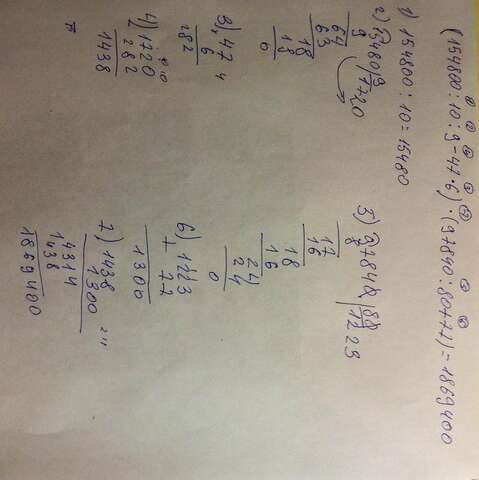 (154800:10:9-47·6)·(97840:80+77)=1869400
1) 154800:10=15480
2) 15480|9
9 |1720
64
63
18
18
0
3) 47
6
282
4) 1720
282
1438
5) 97840|80
8 |1223
17
16
18
16
24
24
0
6) 1223
+ 77
1300
7) 1438
1300
4314
1438
1869400